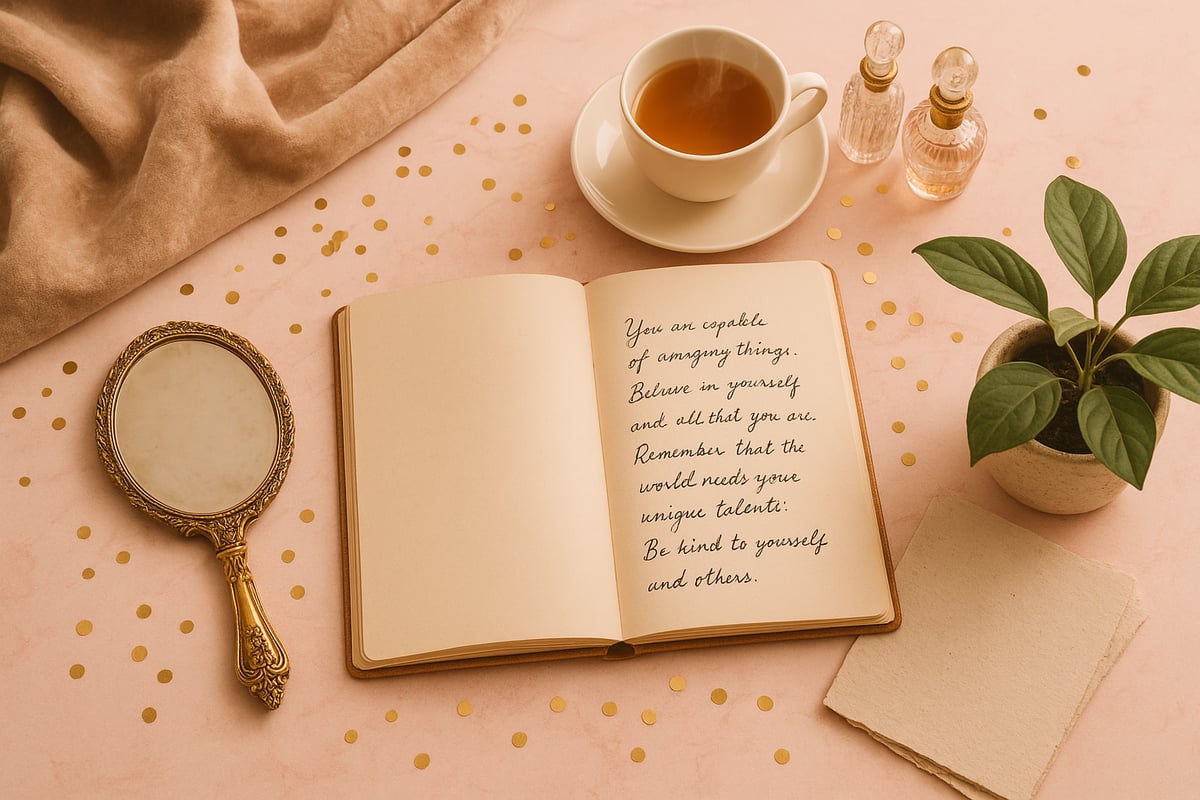 You are capable
of amazing things.
Believe in yourself
and all that you are.
Remember that the
world needs your
unique talents.
Be kind to yourself
and others.